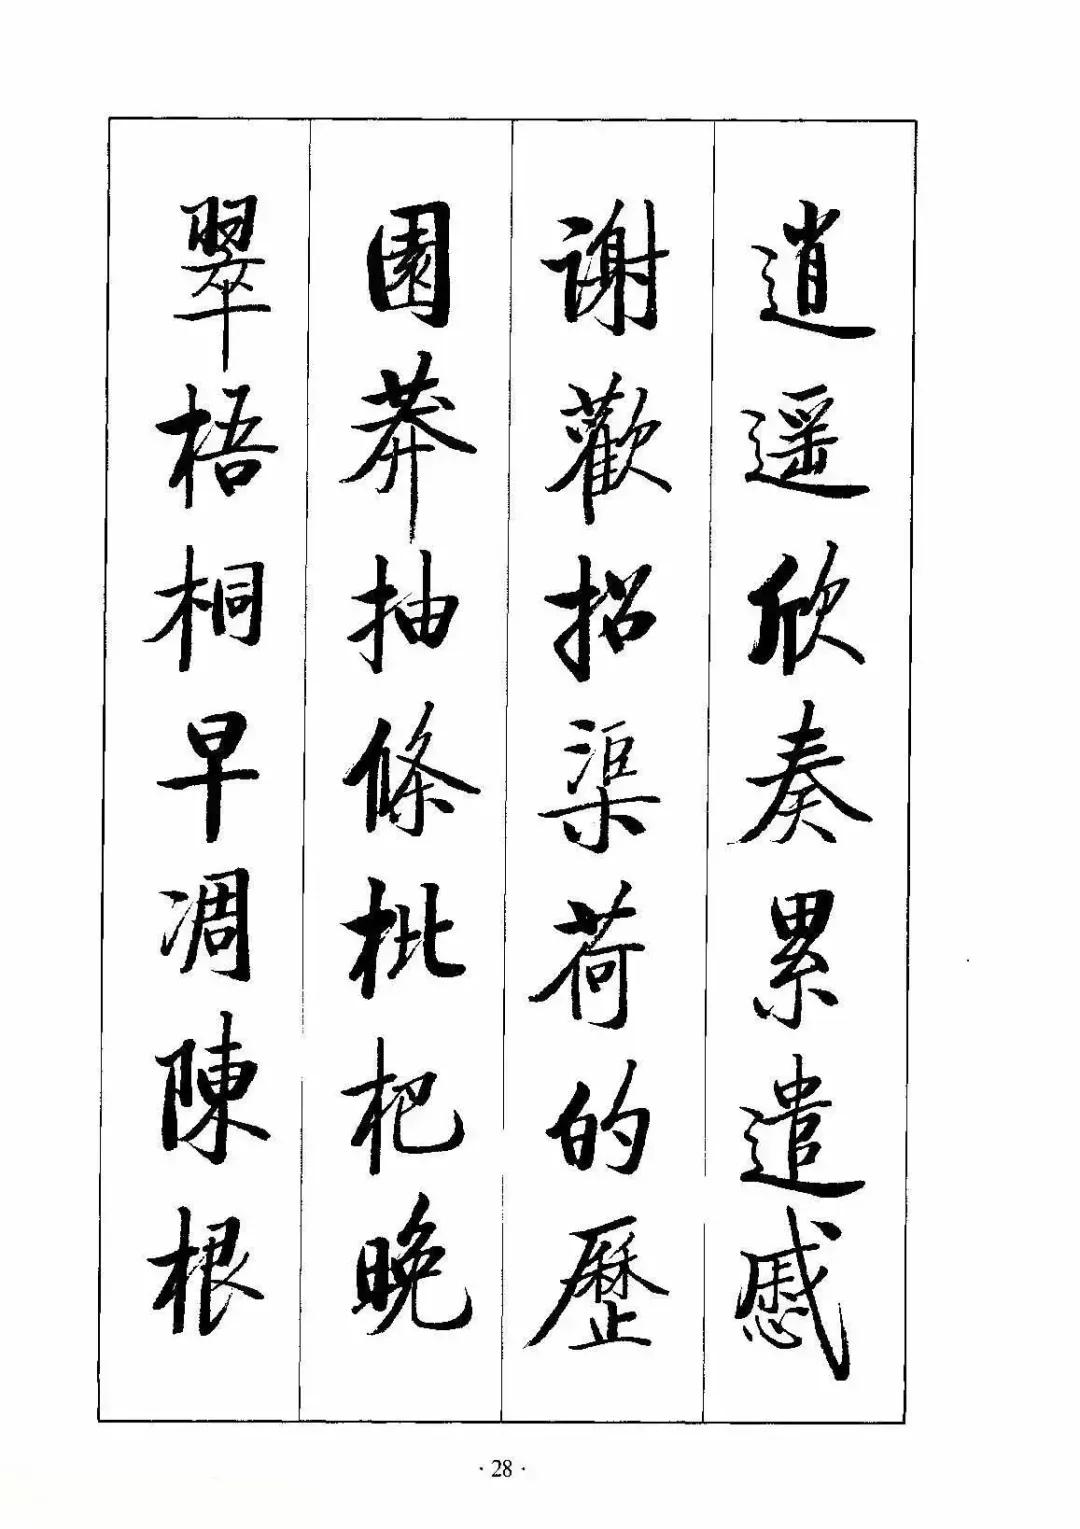 逍遥欣奏累遣慼
謝歡招渠荷的歷
園莽抽條枇杷晚
翠梧桐早凋陳根
·28·